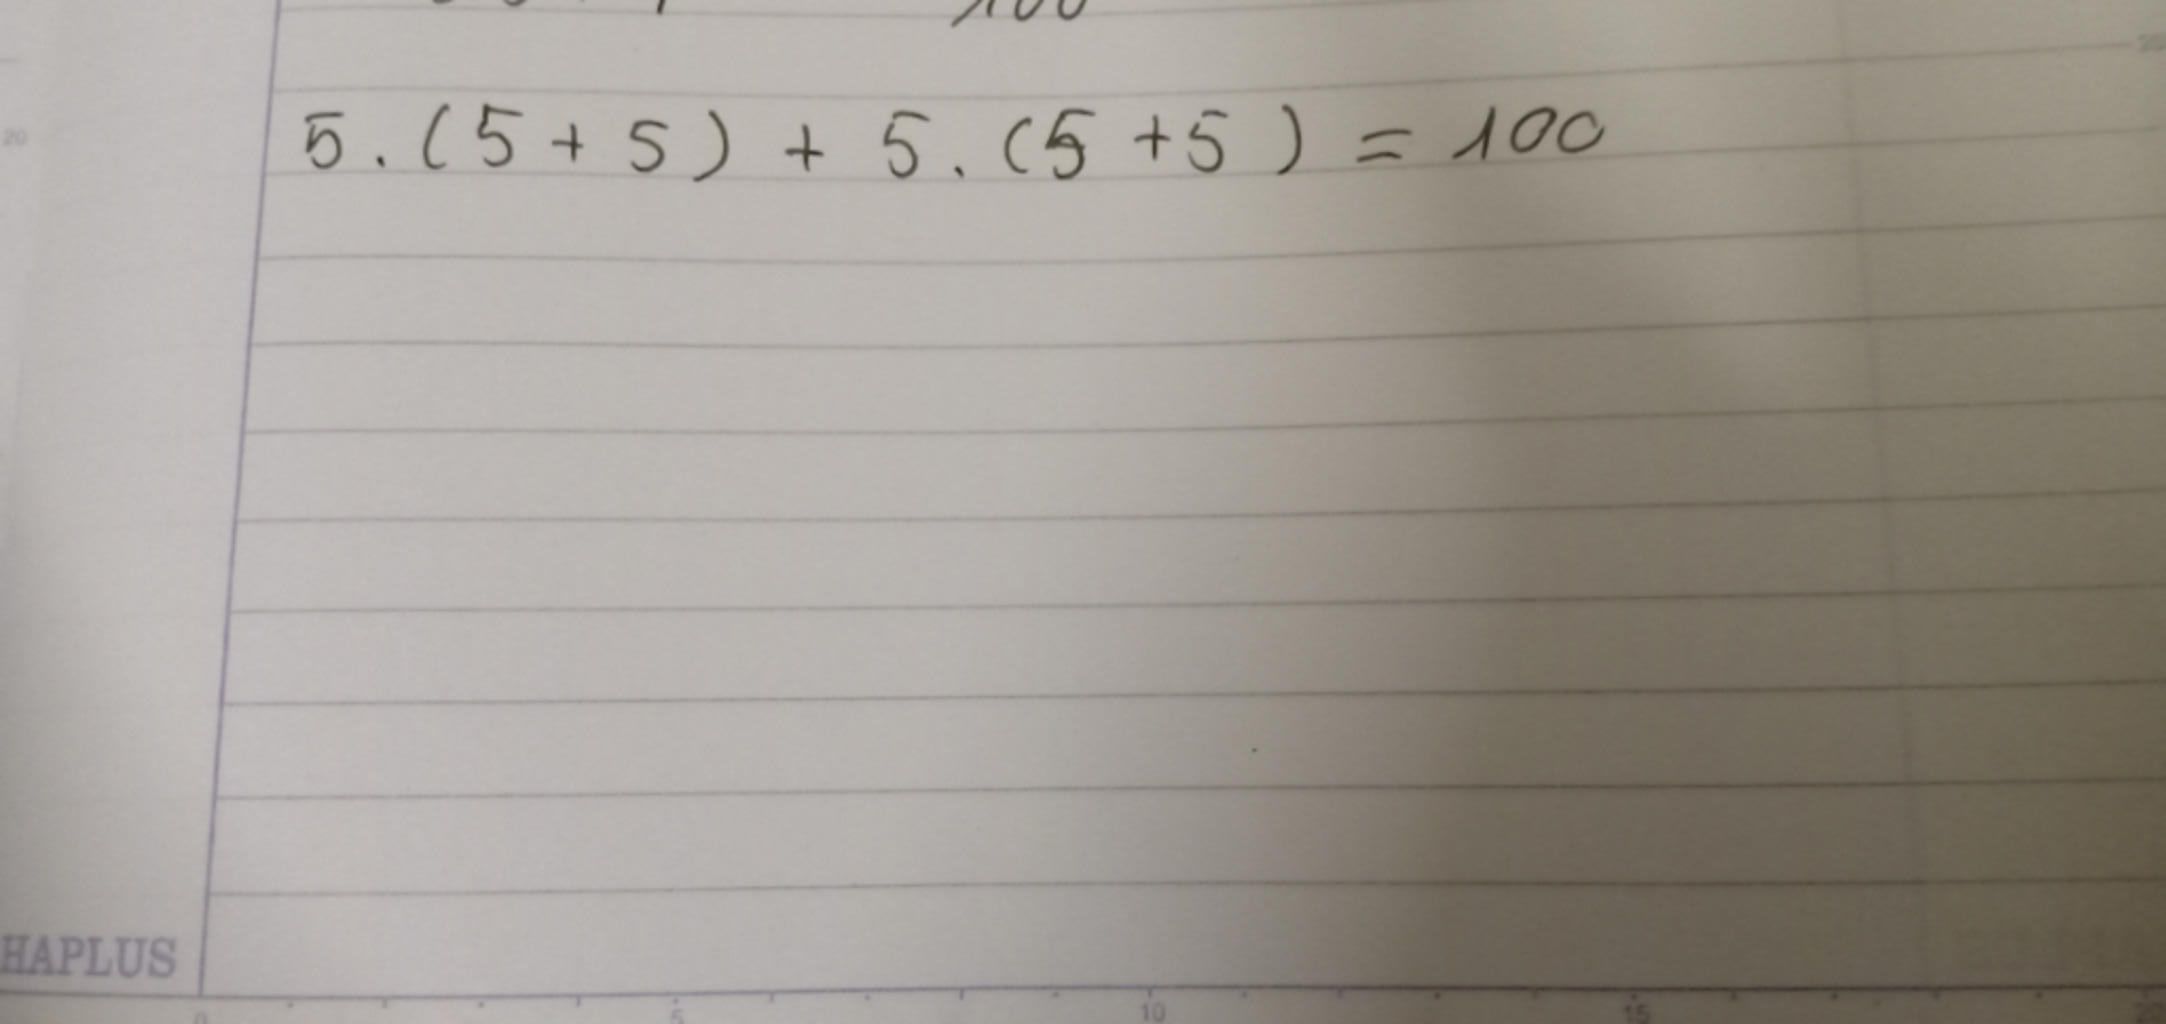 100
20
5 . ( 5 + 5 ) + 5 . ( 5 + 5 ) = 100
HAPLUS
0 5 10 15 20